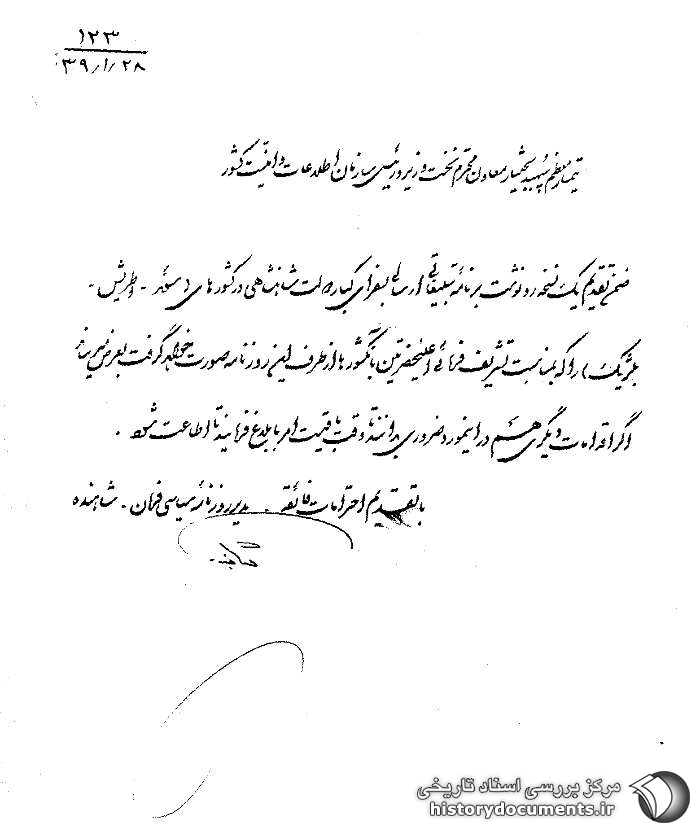 ۱۲۳
۳۹/۱/۲۸
تیمسار معظم سپهبد بختیار معاون محترم نخست وزیر و رئیس سازمان اطلاعات و امنیت کشور
ضمن تقدیم یک نسخه رونوشت برنامه تبلیغاتی ارسالی بسفرای کبار دولت شاهنشاهی در کشورهای (سوئد - اطریش -
بلژیک) را که بمناسبت تشریف فرمائی اعلیحضرتین بآنکشورها از طرف این روزنامه صورت خواهد گرفت بعرض میرساند
اگر اقدامات دیگری هم در اینمورد ضروری بدانند تا وقت باقیست امر بابلاغ فرمایند تا اطاعت شود .
با تقدیم احترامات فائقه . مدیر روزنامه سیاسی فرمان - شاهنده
مرکز بررسی اسناد تاریخی
historydocuments.ir